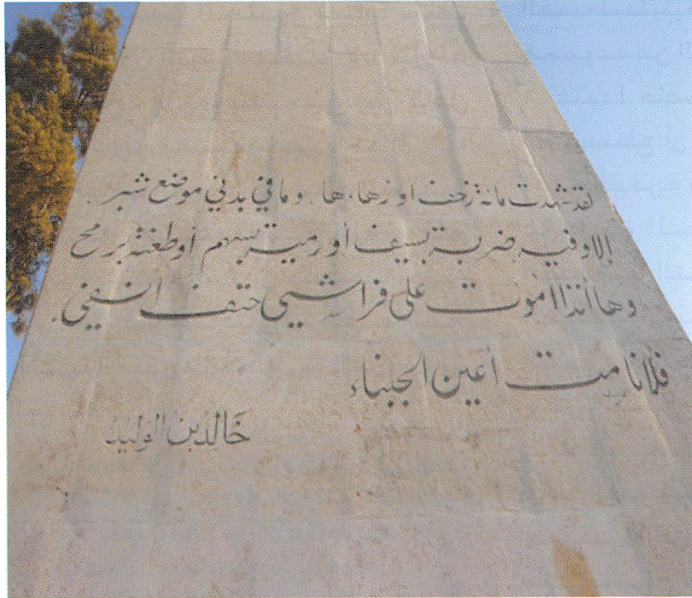 لقد شهدت مائة زحف او زهاءها. وما في بدني موضع شبر.
إلا وفيه ضربة بسيف أو رمية بسهم أو طعنة برمح
وها أنذا أموت على فراشي حتف انفي.
فلا نامت أعين الجبناء
خالد بن الوليد